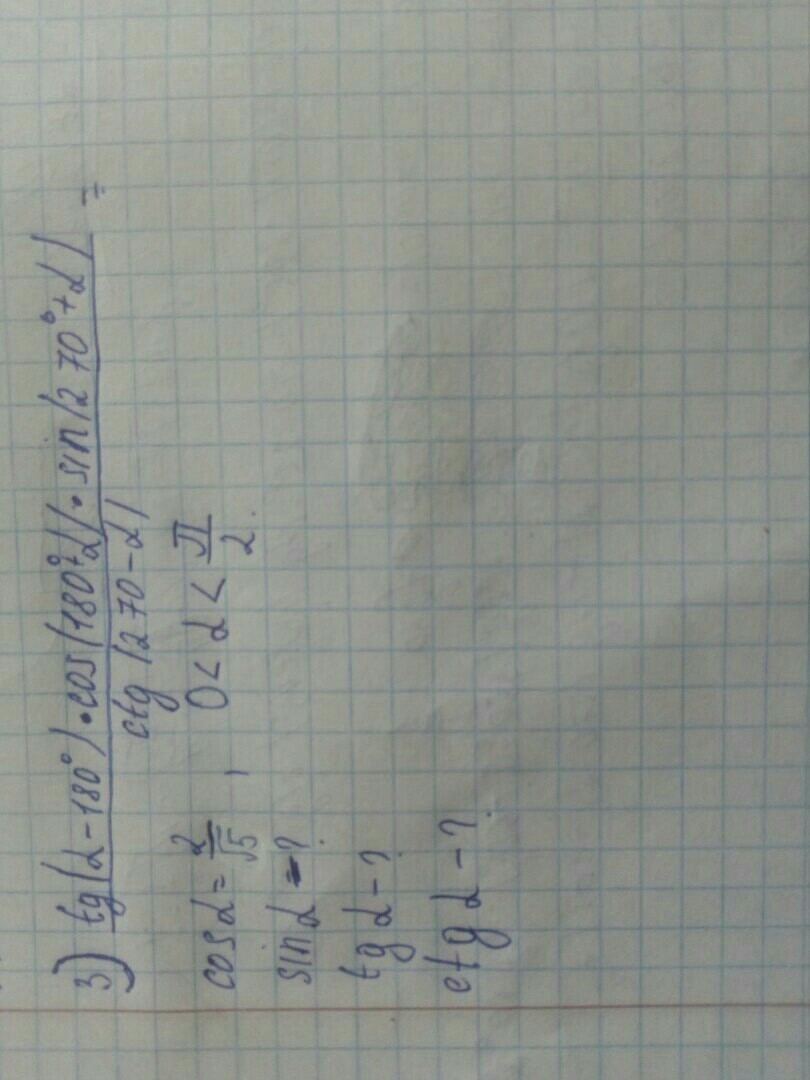 3) tg(α-180°)·cos(180°+α)·sin(270°+α) =
ctg(270-α)
cosα = 2/√5 , 0 < α < π/2.
sinα - ?
tgα - ?
ctgα - ?